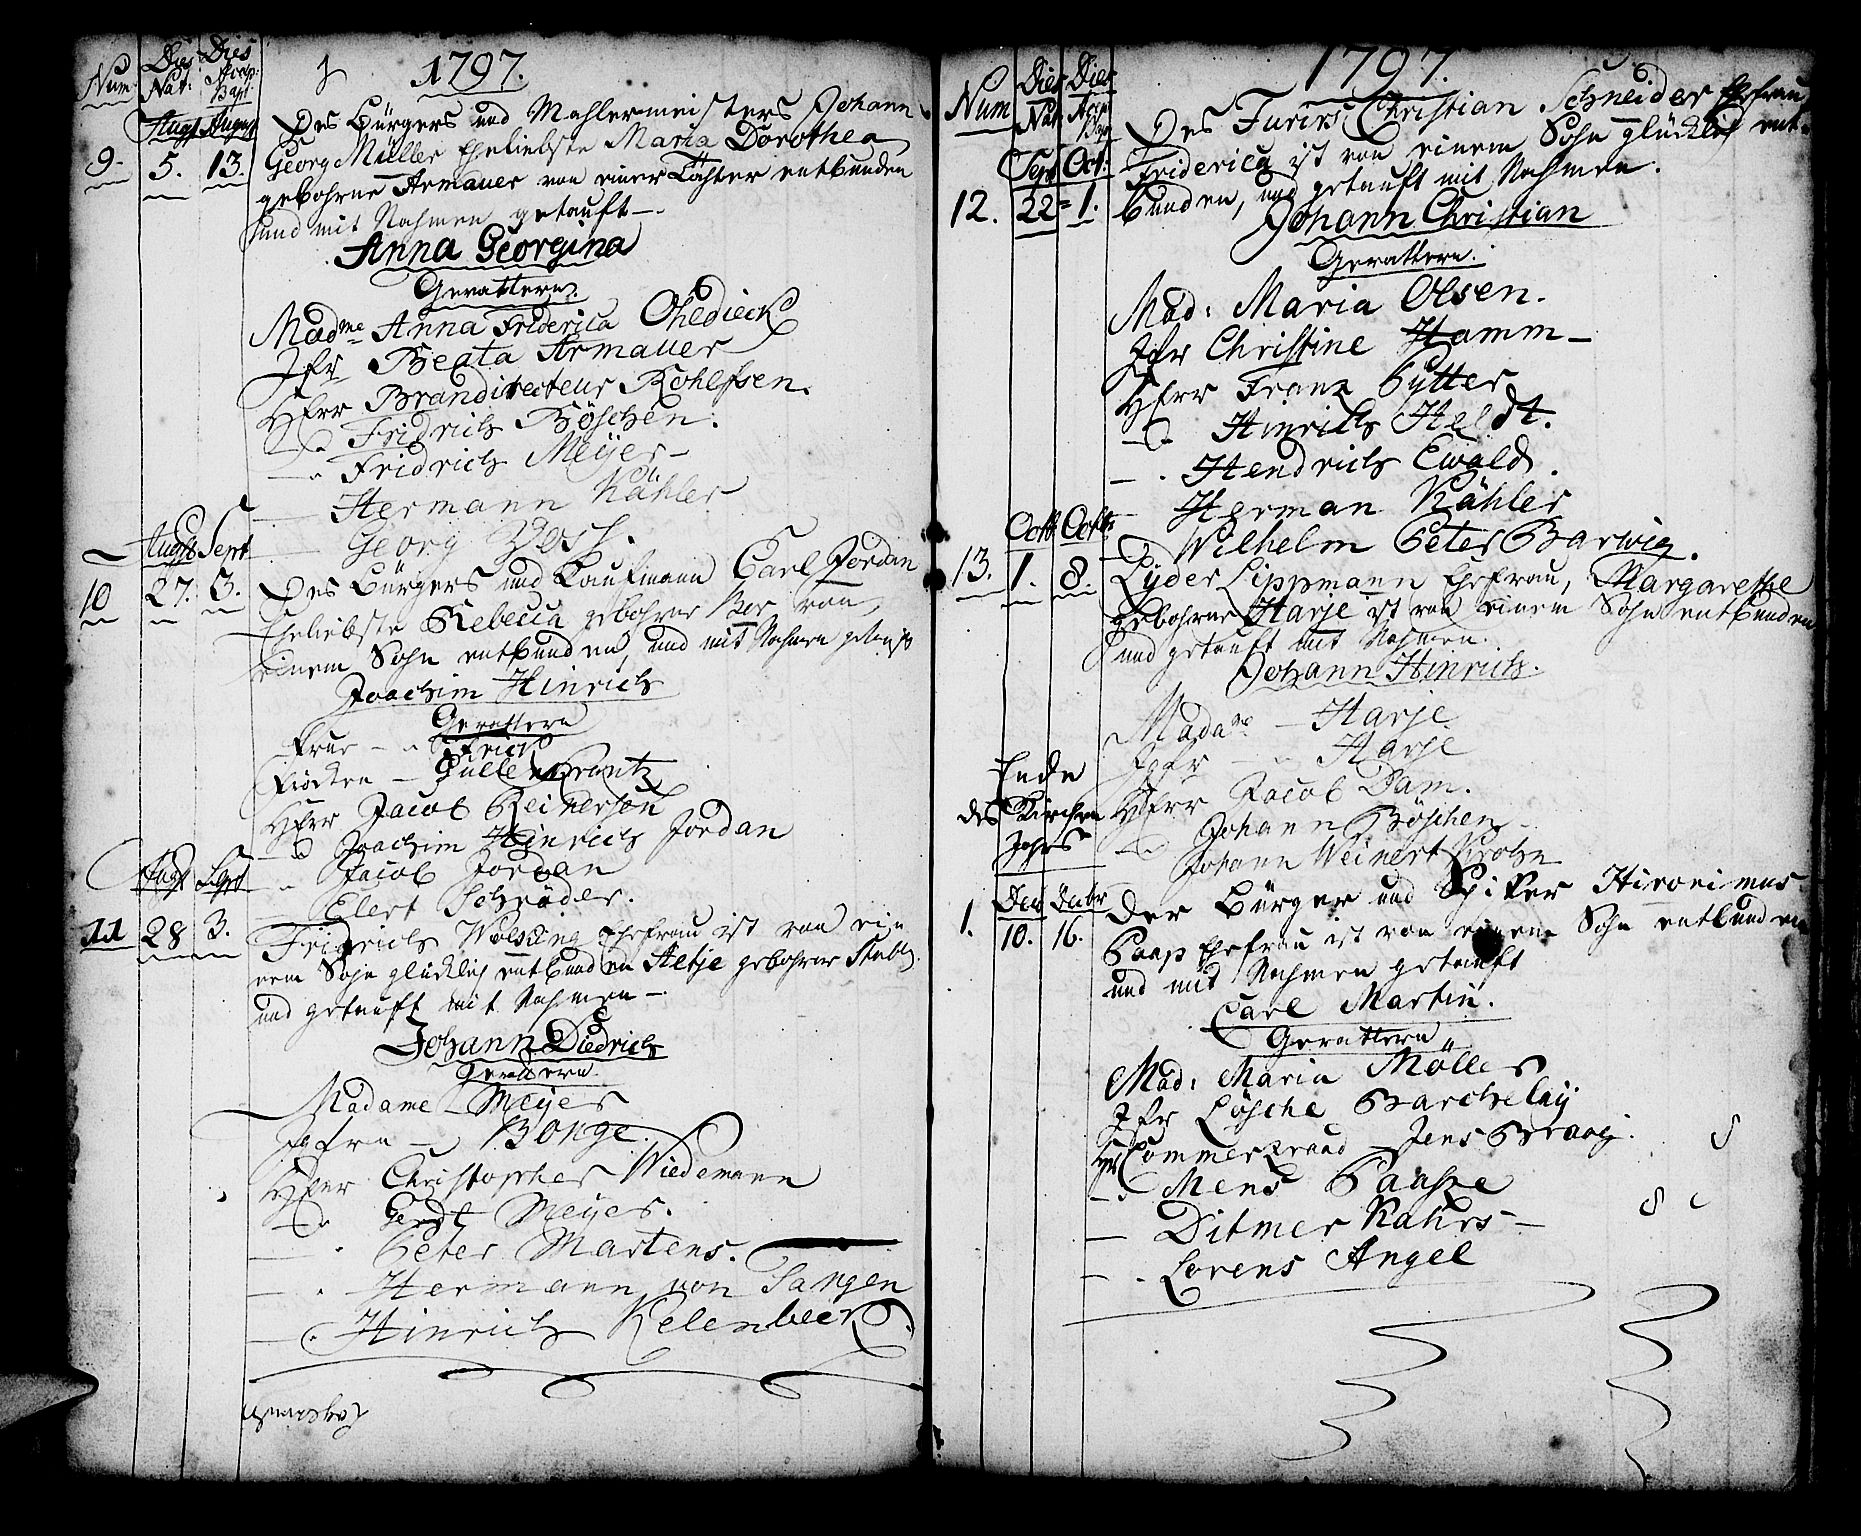 1797.
Num. Dies Nat: Dies Bapt.
Augst August
9. 5. 13.
Des Bürgers und Mahlermeisters Johann
Georg Müller Eheliebste Maria Dorothea
gebohrne Armauer von einer Tochter entbunden
und mit Nahmen getauft—.
Anna Georgina
Gevattern.
Madme Anna Friderica Ohedieck
Jfr Beata Armauer
HErr Branddirecteur Rohlfsen.
Fridrich Böschen.
— " Fridrich Meÿer—
— Hermann Kähler
— Georg Voss.
Augst Sept
10 27. 3.
Des Bürgers und Kaufmann Carl Jordan
Eheliebste Rebecca gebohrne von
einem Sohn entbunden, und mit Nahmen getauft
Joachim Hinrich
Gevattern
Frue — " Frich
Fröcken — Güllencrantz
HErr Jacob Reinerson
— " Joachim Hinrich Jordan
— " Jacob Jordan
— Elert Schröder.
Augst Sept
11 28 3.
Fridrich Wolsding Ehefrau ist von ein
nem Sohn glücklich entbunden Aeltje gebohrne
und getauft mit Nahmen—
Johann Diedrich
Gevattern
Madame Meÿer
Jgfru — Bonge.
HErr Christopher Wiedemann
— " Gerdt Meÿer.
— " Peter Martens.
— " Hermann von Tangen
— " Hinrich Kelenbeck.
1797.
Num Dies Nat. Dies Bap
Sept Oct:
12. 22= 1.
Des Furirs Christian Schneider Ehefrau
Friderica ist von einem Sohn glücklich ent-
bunden, und getauft mit Nahmen.
Johann Christian
Gevattern.
Mad: Maria Olsen.
Jfr Christine Hamm—
HErr Franz Pÿtter
— " Hinrich Heldt.
— . Hendrich Ewald.
— Herman Kähler
— Wilhelm Peter Barwig.
Octb Octbr
13. 1. 8.
Lÿder Lippmann Ehefrau, Margarethe
gebohrne Harje ist von einem Sohn entbunden
und getauft mit Nahmen.
Johann Hinrich.
Madame — Harje
Jgfr — " Harje
HErr Jacob Dam.
— " Johann Böschen
Johann Weinert Krohn
Ende
des Kirchen
Jahrs
Decbr
1. 10. 16.
Der Bürger und Hironimus
Paap Ehefrau ist von einem Sohn entbunden
und mit Nahmen getauft
Carl Martin.
Gevattern
Mad: Maria Möller
Jfr Lösche Barchelaÿ
Hr Commerzraad Jens Braag.
— " Mens Paasze
— Ditmer Kahrs—
— . Lorens Angel